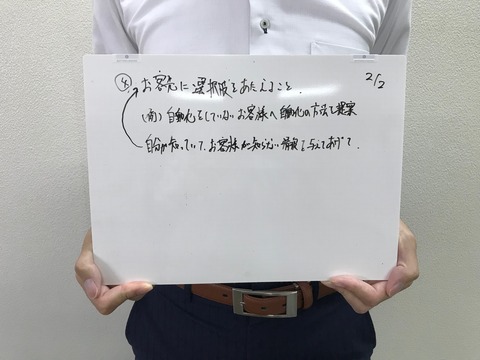 2/2
④ お客先に選択肢をあたえること.
(例) 自動化をしていないお客様へ自動化の方法を提案
自分が知っていて、お客様が知らない情報を与えてあげて